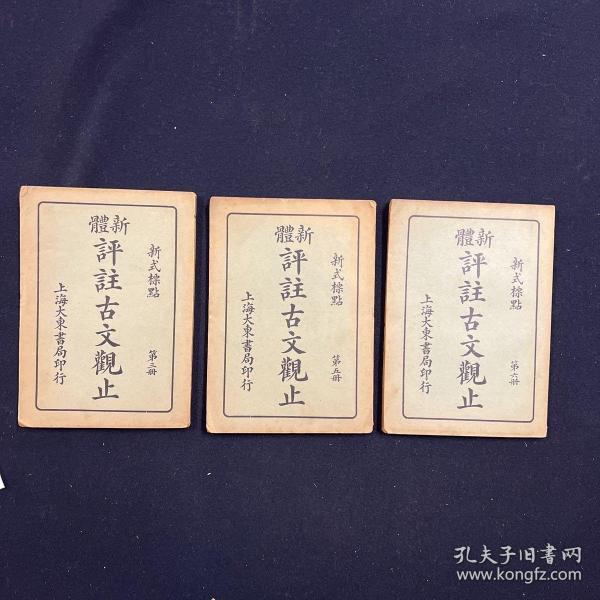 新式標點
新體
評註古文觀止
第三册
上海大東書局印行
新式標點
新體
評註古文觀止
第五册
上海大東書局印行
新式標點
新體
評註古文觀止
第六册
上海大東書局印行
孔夫子旧书网
www.kongfz.com